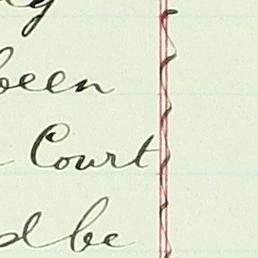 been
Court
be